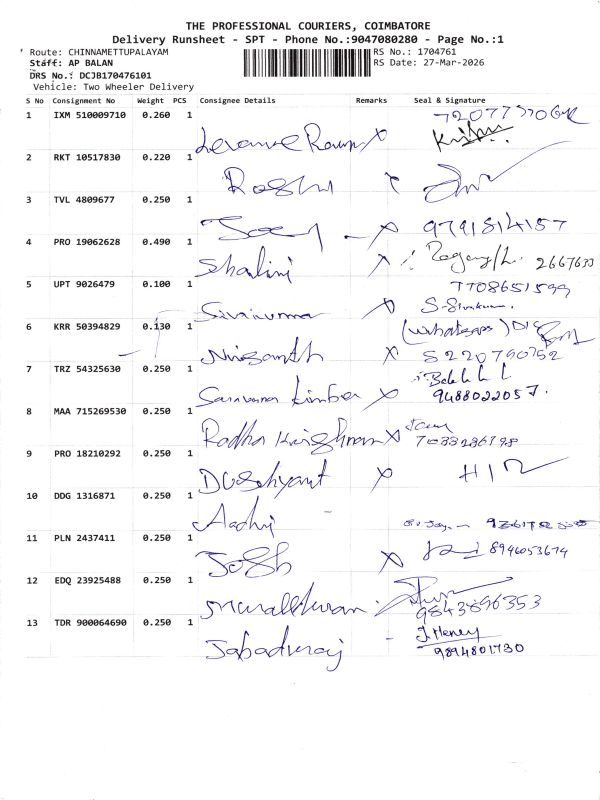 THE PROFESSIONAL COURIERS, COIMBATORE
Delivery Runsheet - SPT - Phone No.:9047080280 - Page No.:1
Route: CHINNAMETTUPALAYAM RS No.: 1704761
Staff: AP BALAN RS Date: 27-Mar-2026
DRS No.: DCJB170476101
Vehicle: Two Wheeler Delivery
S No Consignment No Weight PCS Consignee Details Remarks Seal & Signature
1 IXM 510009710 0.260 1
2 RKT 10517830 0.220 1
Roshni
3 TVL 4809677 0.250 1
9791814157
4 PRO 19062628 0.490 1
Shalini X 2667633
5 UPT 9026479 0.100 1 7708651599
X S-Sivakum.
6 KRR 50394829 0.130 1 (Whatsapp)
Nirsanth X 8220790752
7 TRZ 54325630 0.250 1
X 9488022057.
8 MAA 715269530 0.250 1
Radha Krishnan X 7033286798
9 PRO 18210292 0.250 1
Dushyant X
10 DDG 1316871 0.250 1
Aadhi -
11 PLN 2437411 0.250 1
X 8946053674
12 EDQ 23925488 0.250 1
9843896353
13 TDR 900064690 0.250 1 J. Heney
Jabaduraj - 9894801730